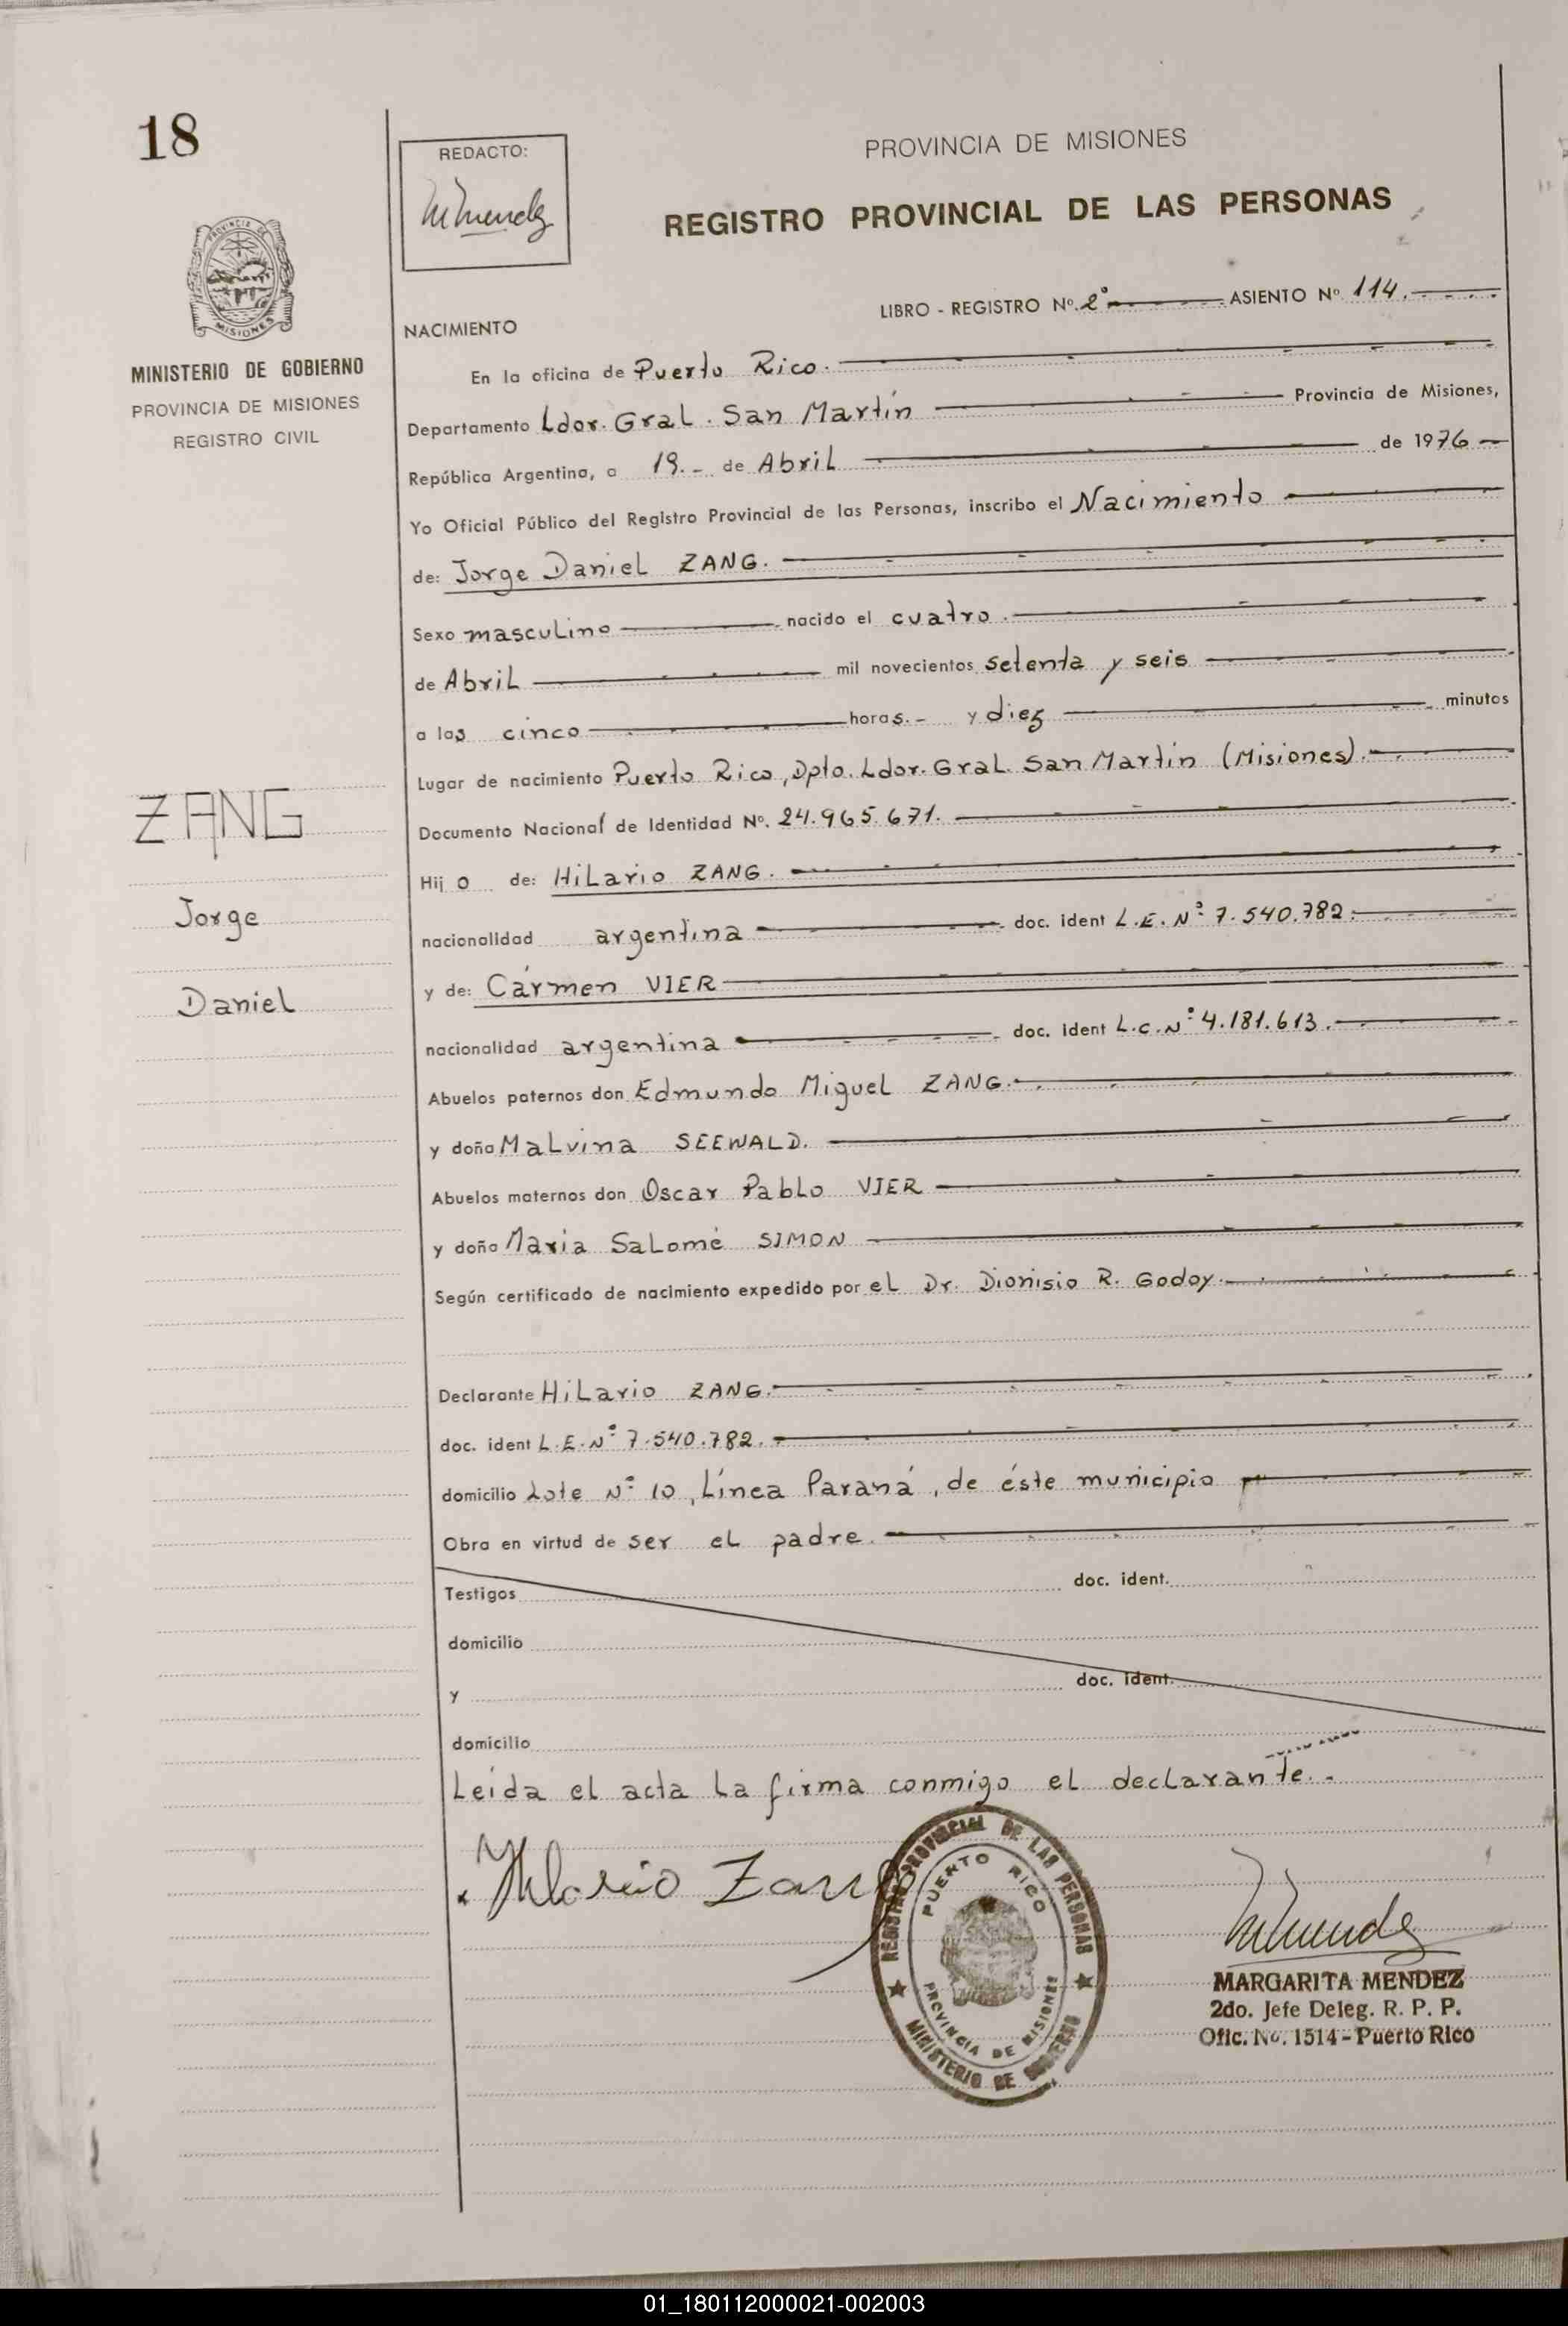 18
REDACTO:
MMendez
PROVINCIA DE MISIONES
REGISTRO PROVINCIAL DE LAS PERSONAS
PROVINCIA DE
MISIONES
MINISTERIO DE GOBIERNO
PROVINCIA DE MISIONES
REGISTRO CIVIL
LIBRO - REGISTRO Nº. 2º ASIENTO Nº 114.
NACIMIENTO
En la oficina de Puerto Rico.
Departamento Ldor. Gral. San Martín Provincia de Misiones,
República Argentina, a 19.- de Abril de 1976
Yo Oficial Público del Registro Provincial de las Personas, inscribo el Nacimiento
de: Jorge Daniel ZANG.
Sexo masculino nacido el cuatro.
de Abril mil novecientos setenta y seis
a las cinco horas.- y diez minutos
Lugar de nacimiento Puerto Rico, Dpto. Ldor. Gral. San Martín (Misiones).
Documento Nacional de Identidad Nº. 24.965.671.
Hijo de: Hilario ZANG.
nacionalidad argentina doc. ident L.E. Nº 7.540.782.
y de: Cármen VIER
nacionalidad argentina doc. ident L.C. Nº 4.181.613.
Abuelos paternos don Edmundo Miguel ZANG.
y doña Malvina SEEWALD.
Abuelos maternos don Oscar Pablo VIER
y doña Maria Salomé SIMON
Según certificado de nacimiento expedido por el Dr. Dionisio R. Godoy.
Declarante Hilario ZANG.
doc. ident L.E. Nº 7.540.782.
domicilio Lote Nº 10, Línea Paraná, de éste municipio
Obra en virtud de ser el padre.
Testigos doc. ident.
domicilio
y doc. ident.
domicilio
Leída el acta la firma conmigo el declarante.-
Hilario Zang
REGISTRO PROVINCIAL DE LAS PERSONAS
PUERTO RICO
PROVINCIA DE MISIONES
MINISTERIO DE GOBIERNO
MMendez
MARGARITA MENDEZ
2do. Jefe Deleg. R. P. P.
Ofic. No. 1514 - Puerto Rico
ZANG
Jorge
Daniel
01_180112000021-002003